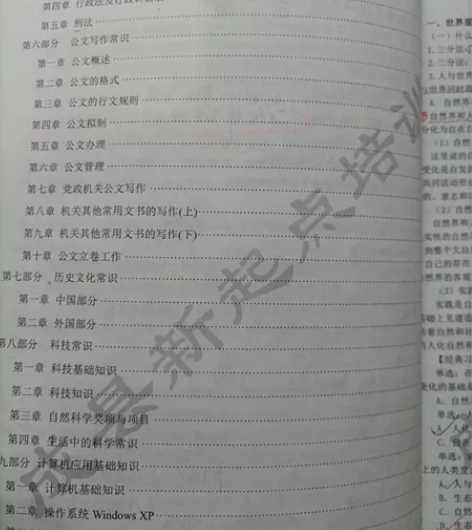 第四章 行政法及行政诉讼法
第五章 刑法
第六部分 公文写作常识
第一章 公文概述
第二章 公文的格式
第三章 公文的行文规则
第四章 公文拟制
第五章 公文办理
第六章 公文管理
第七章 党政机关公文写作
第八章 机关其他常用文书的写作(上)
第九章 机关其他常用文书的写作(下)
第十章 公文立卷工作
第七部分 历史文化常识
第一章 中国部分
第二章 外国部分
第八部分 科技常识
第一章 科技基础知识
第二章 科技知识
第三章 自然科学奖项与项目
第四章 生活中的科学常识
九部分 计算机应用基础知识
第一章 计算机基础知识
第二章 操作系统 Windows XP
新起点培训
一、世界观
(一) 什么
1. 三分法
2. 二分法
3. 人与世界
4. 自然界
自然界和人
分化为自在
(1) 自然
这里说的自
变化是自发的
共同活动形
的、意志和
(2) 自然
自然界和
实性的自然
自己的存在
然界的客观
(3) 实践
实践是自
基础上见建造
着自然和
的人化自然和
【经典
单选：在
变化的基础
A. 自然
单选：
A. 人化
B. 自在
C. 自然
单选：
上的人类发
A. 人与
B. 生态
C. 自然